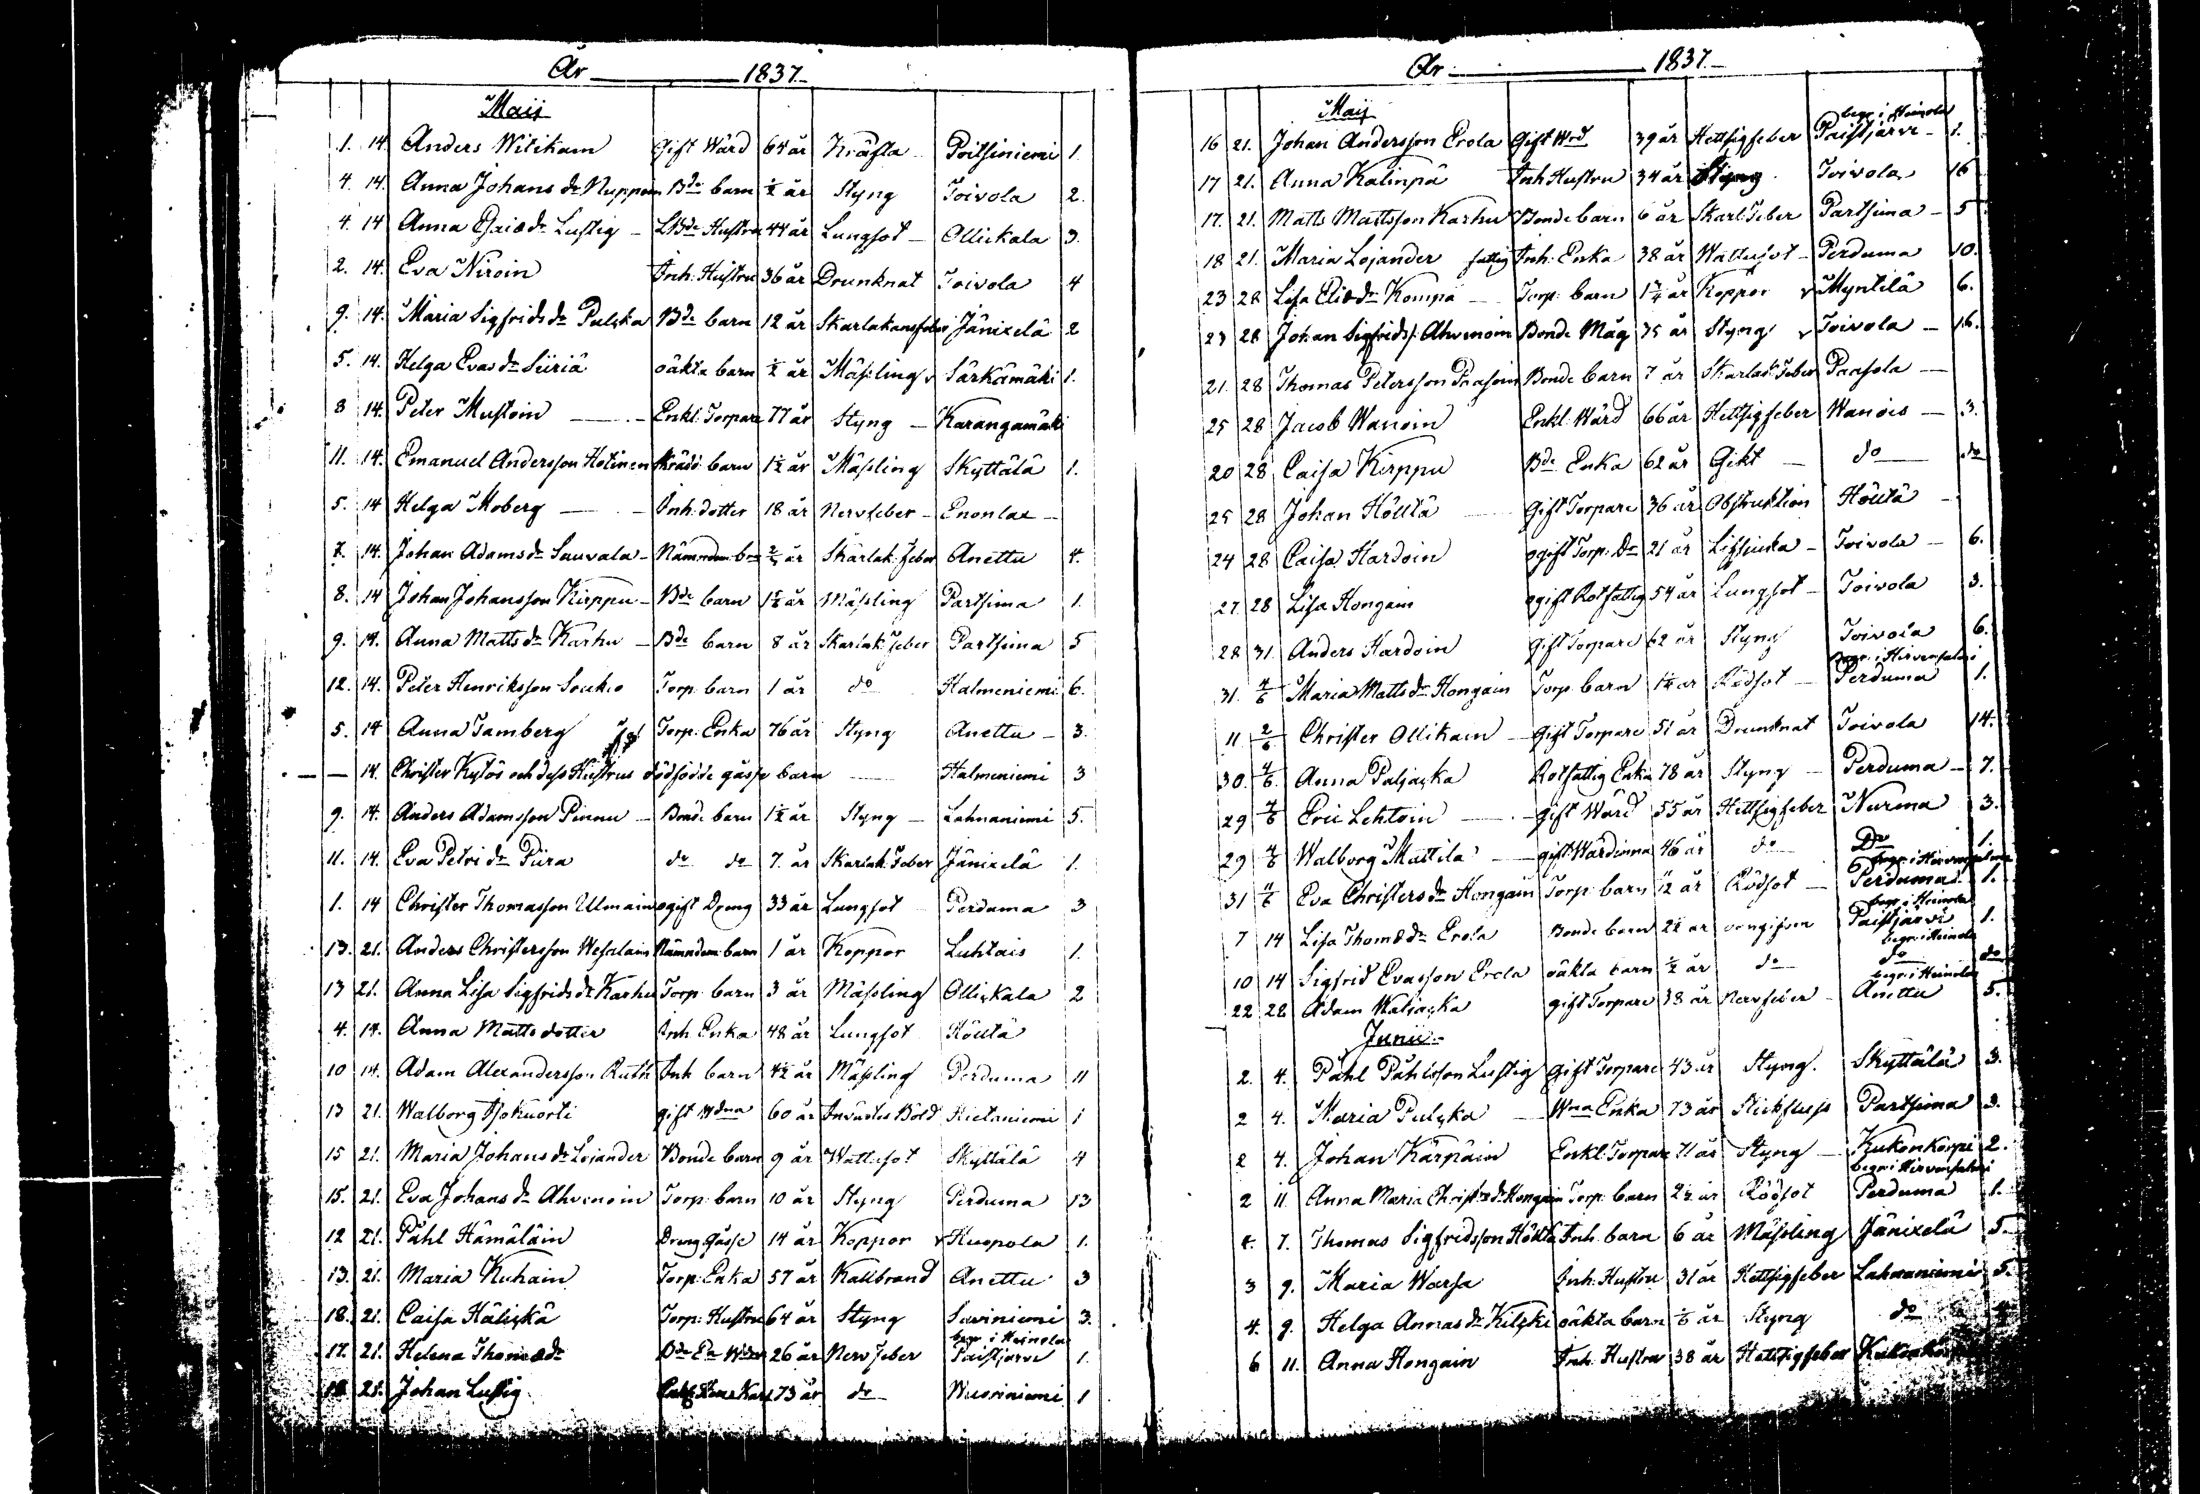 År 1837.
Maij
1. 14. Anders Witikam Gift Wärd 64 år Kräfta Poitsiniemi 1.
4. 14. Anna Johans dr Nuppoin Bde barn ½ år Styng Toivola 2.
4. 14 Anna Esaiædr Lustig LBde Hustru 44 år Lungsot Ollickala 3.
2. 14. Eva Niroin Inh. Hustru 36 år Drunknat Toivola 4
9. 14. Maria Sigfrids dr Pulcka Bde barn 12 år Skarlakansfeber Jänixelä 2
5. 14. Helga Evas dr Siiriä oäkta barn ½ år Mässling Särkämäki 1.
8 14. Peter Mustoin Enkl. Torpare 77 år Styng Karangamäki
11. 14. Emanuel Andersson Hotinen barn 1½ år Mässling Skyttälä 1.
5. 14 Helga Moberg Inh. dotter 18 år Nervfeber Enonlax
7. 14. Johan Adams dr Sauvala Nämndem. br år Skarlak. feber Anettu 4.
8. 14 Johan Johansson Kirppu Bde barn år Mässling Partsima 1.
9. 14. Anna Matts dr Karhu Bde barn 8 år Skarlak. feber Partsima 5
12. 14. Peter Henriksson Soukio Torp. barn 1 år do Halmeniemi 6.
5. 14 Anna Tamberg Torp. Enka 76 år Styng Anettu 3.
14. Christer Kytös och dess Hustrus dödfödde gåsse barn Halmeniemi 3
9. 14. Anders Adamsson Pinnu Bonde barn 1½ år Styng Lahnaniemi 5.
11. 14. Eva Petri dr Piira do do 7. år Skarlak. Feber Jänixelä 1.
1. 14 Christer Thomasson Ulmain ogift Dreng 33 år Lungsot Perduma 3
13. 21. Anders Christersson Wehlain Nämndem. barn 1 år Koppor Luhtais 1.
13 21. Anna Lisa Sigfrids dr Karhu Torp. barn 3 år Mässling Ollickala 2
4. 14. Anna Matts dotter Inh. Enka 48 år Lungsot Höltä
10 14. Adam Alexandersson Ruth Inh. barn 4½ år Mässling Perduma 11
13 21. Walborg Tsokuorti gift Wdna 60 år Invärtes Böld Hietaniemi 1
15 21. Maria Johans dr Lojander Bonde barn 9 år Wattusot Skyttälä 4
15. 21. Eva Johans dr Ahvenoin Torp. barn 10 år Styng Perduma 13
12 21. Påhl Hämäläin Dreng Gåsse 14 år Koppor Kuopola 1.
13. 21. Maria Kuhain Torp. Enka 57 år Kallbrand Anettu 3
18. 21. Caisa Hälickä Torp. Hustru 64 år Styng Saviniemi 3.
begr. i Heinola
17. 21. Helena Thomædr 26 år Nerv feber Paistjärvi 1.
18. 21. Johan Lustig 73 år do Wuoriniemi 1
År 1837.
Maij
begr. i Heinola
16 21. Johan Andersson Erola Gift Wrd 39 år Hettsigfeber Paistjärvi 1.
17 21. Anna Kalinpä Inh Hustru 34 år Styng Toivola 16
17. 21. Matts Mattsson Karhu Bonde barn 6 år Skarl. Feber Partsima 5
18 21. Maria Lojander fattig Inh. Enka 38 år Wattusot Perduma 10.
23 28 Lisa Eliædr Kompa Torp. barn 1¾ år Koppor Myntilä 6.
23 28 Johan Sigfridss. Ahvenoin Bonde Måg 35 år Styng Toivola 16.
21. 28 Thomas Petersson Paasoin Bonde barn 7 år Skarlak. Feber Paasola
25 28 Jacob Wanoin Enkl. Wärd 66 år Hettsigfeber Wanois 3.
20 28 Caisa Kirppu Bde Enka 62 år Gikt do do
25 28 Johan Höltä Gift Torpare 36 år Obstruktion Höltä
24 28 Caisa Hardoin ogift Torp. Dr 21 år Toivola 6.
27. 28 Lisa Hongain ogift Rotfattig 54 år Lungsot Toivola 3.
28 31. Anders Hardoin gift Torpare 62 år Styng Toivola 6.
begr. i Hirvensalmi
31. 4/6 Maria Matts dr Hongain Torp. barn 1½ år Rödsot Perduma 1.
11 2/6 Christer Ollikain gift Torpare 51 år Drunknat Toivola 14.
30. 4/6. Anna Paljacka Rotfattig Enka 78 år Styng Perduma 7.
29 4/6 Eric Lehtoin gift Wärd 55 år Hettsigfeber Nurma 3.
29 4/6 Walborg Mattila gift Wärdinna 46 år do Do 1.
begr. i Hirvensalmi
31 4/6 Eva Christers dr Hongain Torp. barn år Rödsot Perduma 1.
begr. i Heinola
7 14 Lisa Thomædr Erola Bonde barn 2½ år Paistjärvi 1.
begr. i Heinola
10 14 Sigfrid Evasson Erola oäkta barn ½ år do do do
begr. i Heinola
22 28 Adam Waljacka gift Torpare 38 år Nervfeber Anettu 5.
Junii
2. 4. Påhl Påhlsson Lustig gift Torpare 43 år Styng. Skyttälä 3.
2 4. Maria Pulcka Wna Enka 73 år Stickfluss Partsima 3.
2 4. Johan Kärpäin Enkl. Torpare 71 år Styng Kukonkorpi 2.
begr. i Hirvensalmi
2 11. Anna Maria Christrdr Hongain Torp. barn 2½ år Rödsot Perduma 1.
4. 7. Thomas Sigfridsson Höltä Inh. barn 6 år Mässling Jänixelä 5.
3 9. Maria Warsa Inh. Hustru 31 år Hettsigfeber Lahnaniemi 5.
4. 9. Helga Annas dr Kilcki oäkta barn år Styng do
6 11. Anna Hongain Inh. Hustru 38 år Hettsigfeber